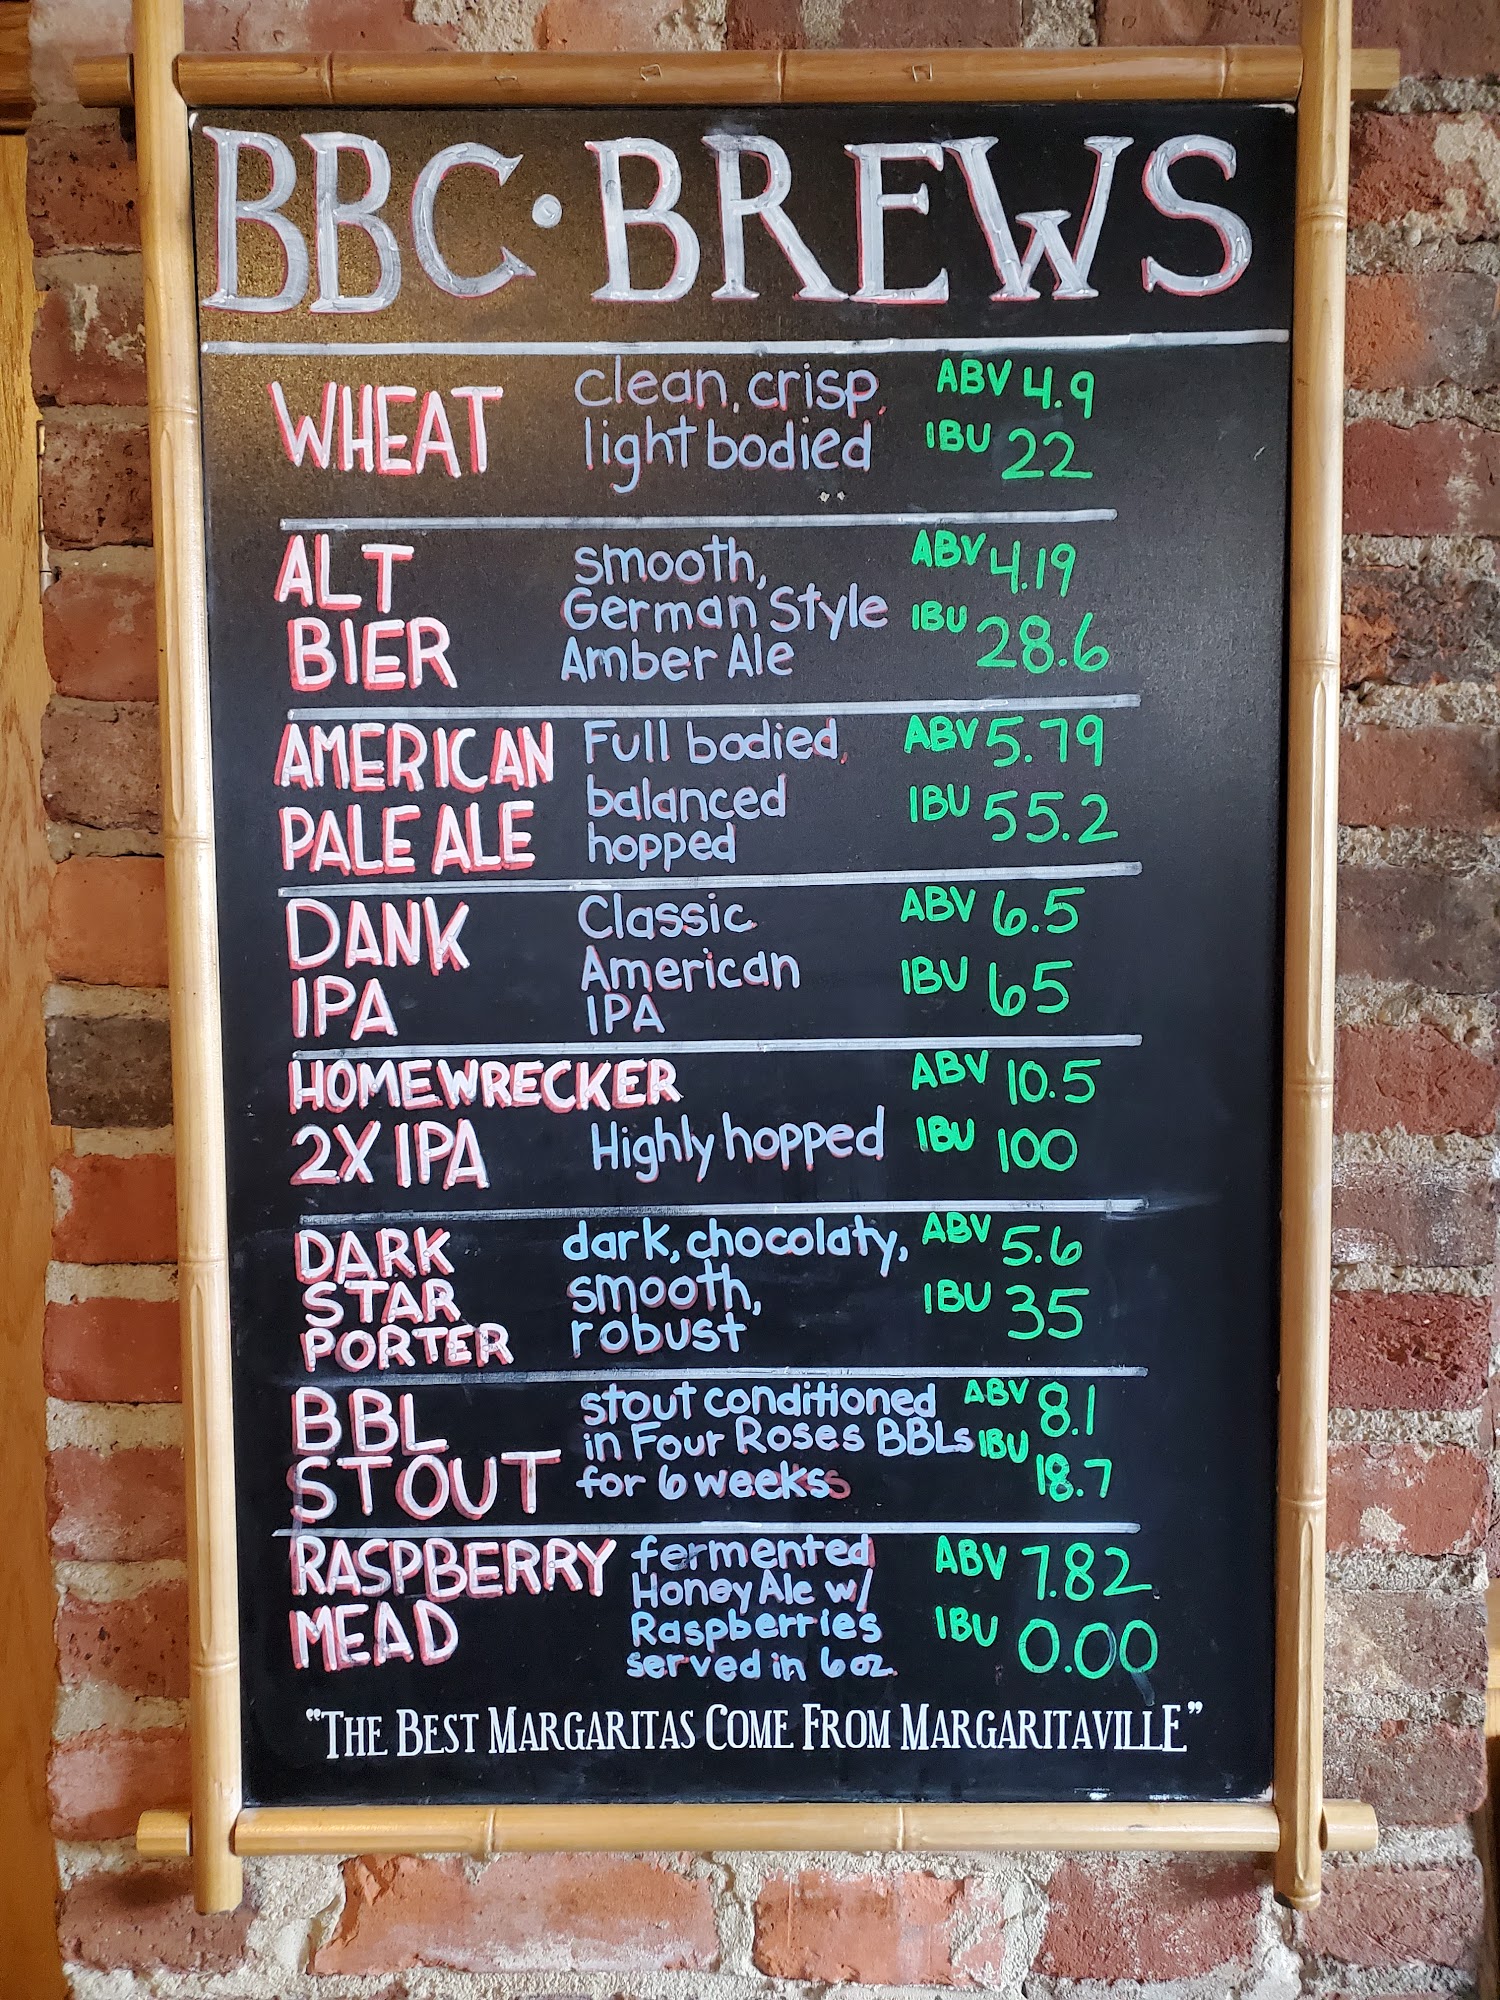 BBC · BREWS
WHEAT
clean, crisp,
light bodied
ABV 4.9
IBU 22
ALT
BIER
smooth,
German Style
Amber Ale
ABV 4.19
IBU 28.6
AMERICAN
PALE ALE
Full bodied,
balanced
hopped
ABV 5.79
IBU 55.2
DANK
IPA
Classic
American
IPA
ABV 6.5
IBU 65
HOMEWRECKER
2X IPA
Highly hopped
ABV 10.5
IBU 100
DARK
STAR
PORTER
dark, chocolaty,
smooth,
robust
ABV 5.6
IBU 35
BBL
STOUT
stout conditioned
in Four Roses BBLs
for 6 weeks
ABV 8.1
IBU 18.7
RASPBERRY
MEAD
fermented
Honey Ale w/
Raspberries
served in 6 oz.
ABV 7.82
IBU 0.00
"THE BEST MARGARITAS COME FROM MARGARITAVILLE"